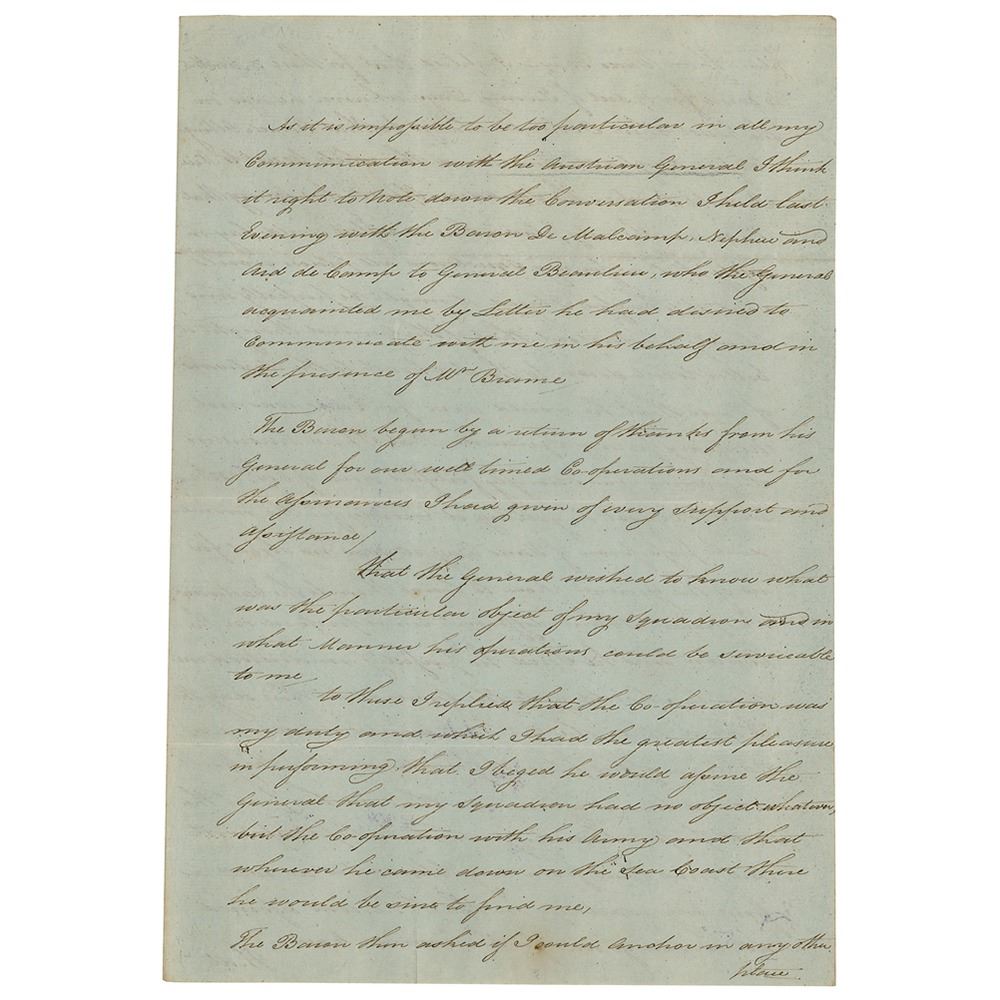 As it is impossible to be too particular in all my
Communication with the Austrian General I think
it right to Note down the Conversation I held last
Evening with the Baron De Malcamp, Nephew and
Aid de Camp to General Beaulieu, who the General
acquainted me by Letter he had desired to
Communicate with me in his behalf and in
the presence of Mr Brame
The Baron began by a return of thanks from his
General for our well timed Co-operations and for
the Assurances I had given of every support and
assistance/
that the General wished to know what
was the particular object of my Squadron and in
what Manner his operations could be servicable
to me
to these I replied that the Co-operation was
my duty and which I had the greatest pleasure
in performing that I beged he would assure the
General that my Squadron had no object whatever,
but the Co-operation with his Army and that
wherever he came down on the Sea Coast there
he would be sure to find me,
The Baron then asked if I could Anchor in any other
place